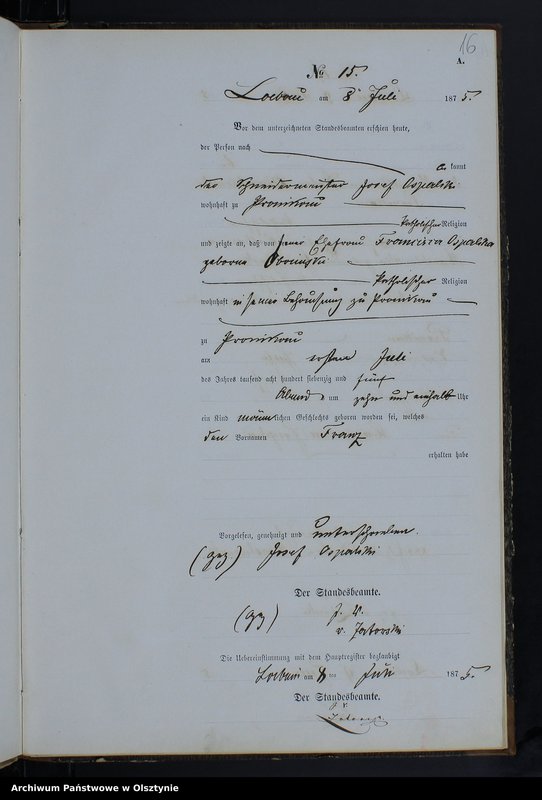 16
A.
No 15.
Loebau am 8 Juli 1875.
Vor dem unterzeichneten Standesbeamten erschien heute,
der Person nach
kannt
der Schneidermeister Josef Ospalski
wohnhaft zu
katholischer Religion
und zeigte an, daß von seiner Ehefrau Francisca Ospalska
geborne
katholischer Religion
wohnhaft in seiner Behausung zu
zu
am ersten Juli
des Jahres tausend acht hundert siebenzig und fünf
Abends um zehn und einhalb Uhr
ein Kind männlichen Geschlechts geboren worden sei, welches
den Vornamen Franz
erhalten habe
Vorgelesen, genehmigt und unterschrieben.
(gez) Josef Ospalski
Der Standesbeamte.
(gz) J. V.
v.
Die Uebereinstimmung mit dem Hauptregister beglaubigt
Loebau am 8ten Juli 1875.
Der Standesbeamte.
J. V.
Archiwum Państwowe w Olsztynie